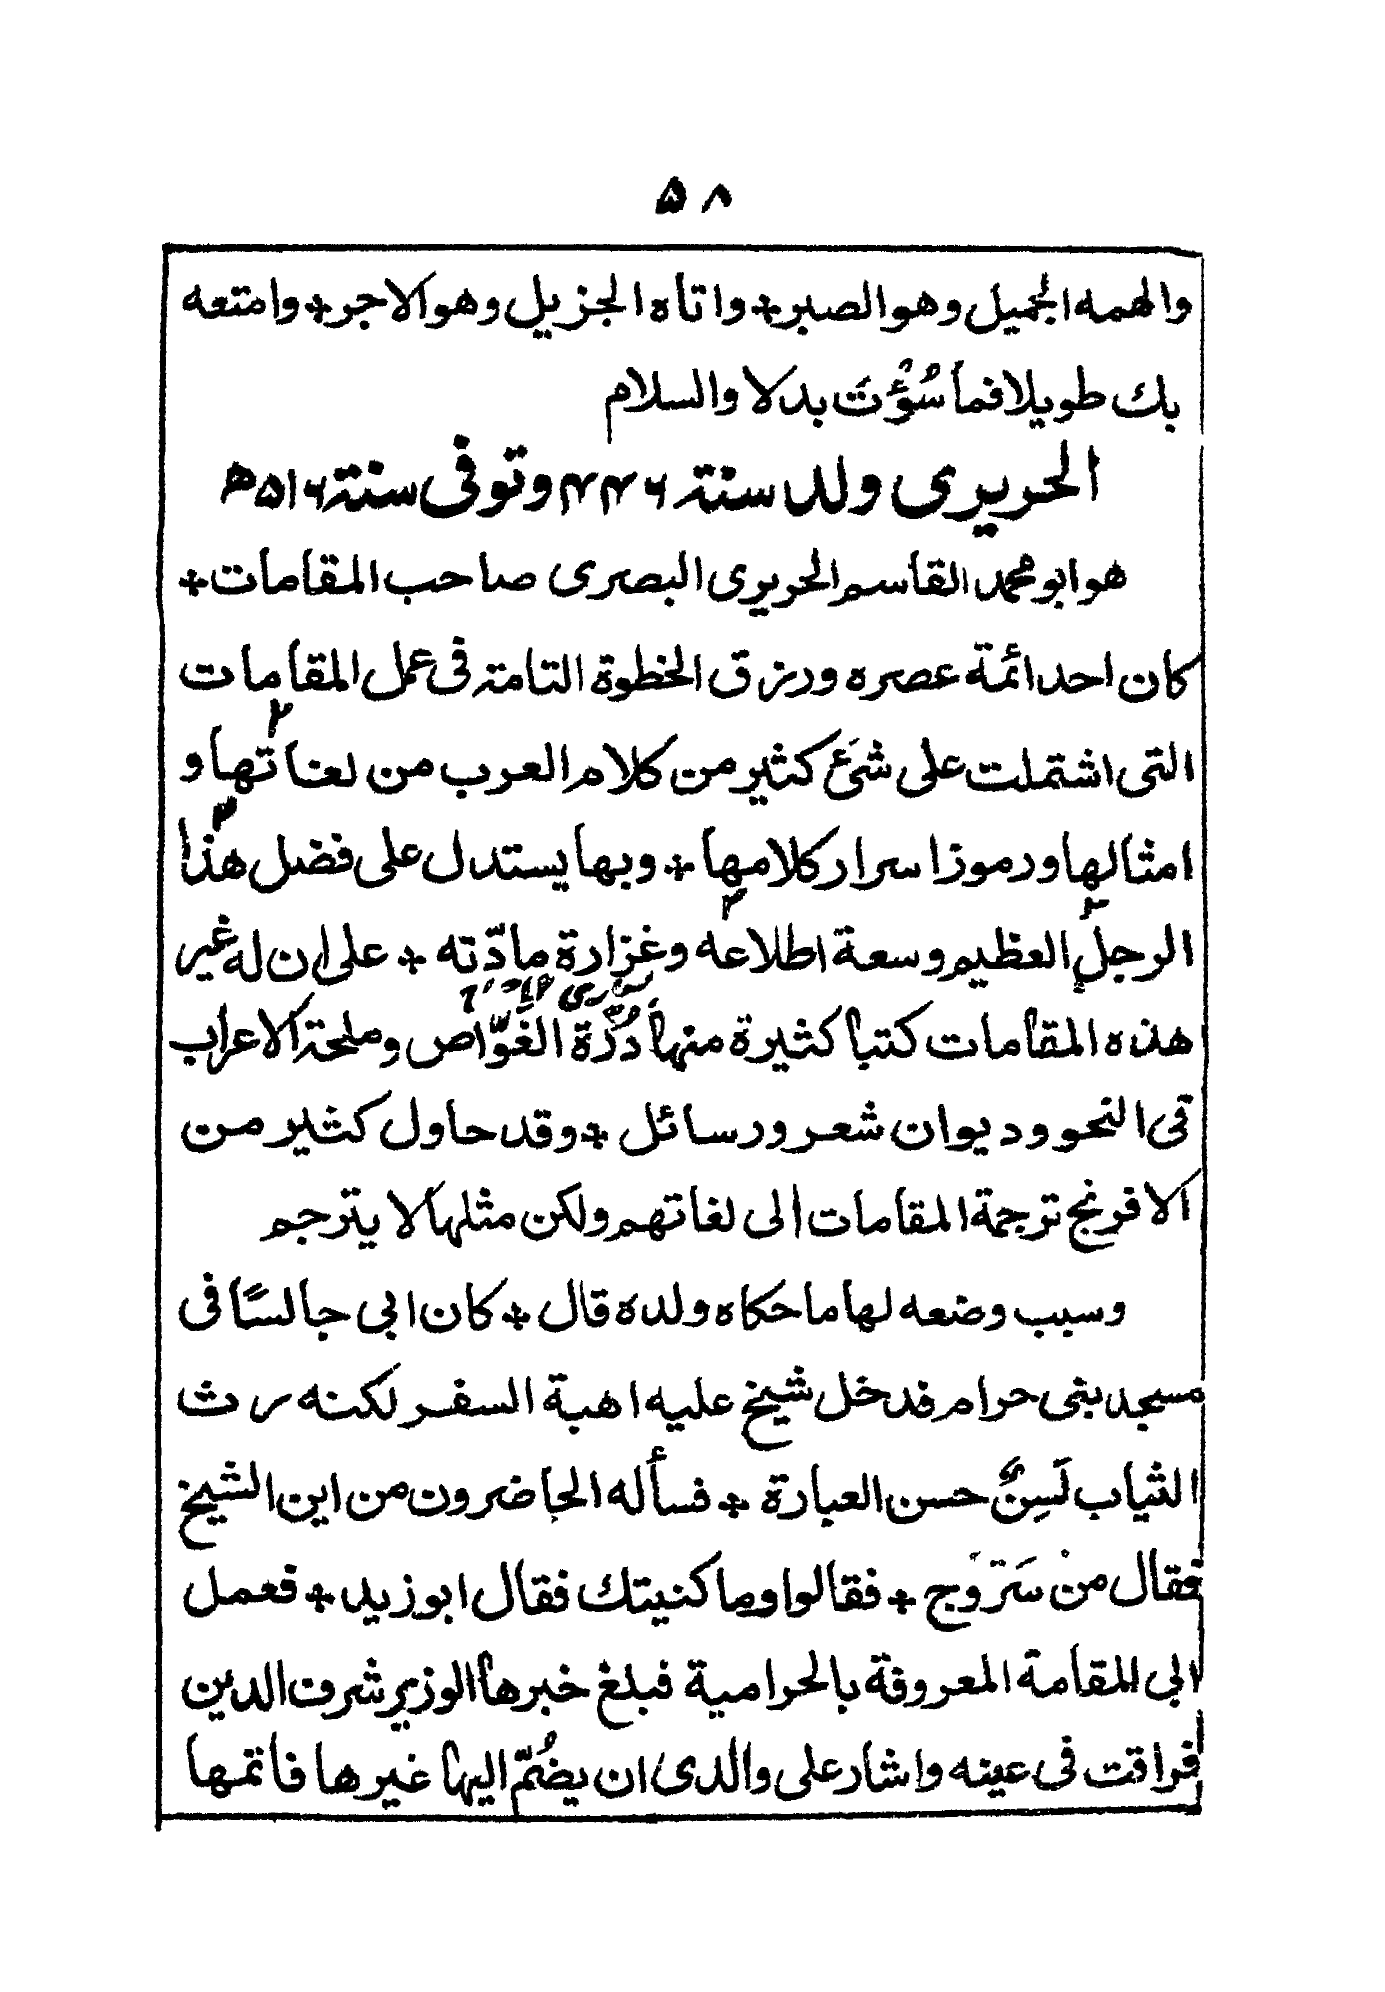 ۵۸
والهمه الجميل وهو الصبر + واتاه الجزيل وهو الاجر + وامتعه
بك طويلا فما سُؤْتَ بدلا والسلام
الحريرى ولد سنة ۴۴۶ وتوفى سنة ۵۱۶ھ
هو ابو محمد القاسم الحريرى البصرى صاحب المقامات +
كان احد ائمة عصره ورزق الخطوة التامة فى عمل المقامات
التى اشتملت على شئ كثير من كلام العرب من لغاتها و
امثالها ورموز اسرار كلامها + وبها يستدل على فضل هذا
الرجل العظيم وسعة اطلاعه وغزارة مادّته + على ان له غير
هذه المقامات كتبا كثيرة منها دُرّة الغَوّاص وملحة الاعراب
فى النحو وديوان شعر ورسائل + وقد حاول كثير من
الافرنج ترجمة المقامات الى لغاتهم ولكن مثلها لا يترجم
وسبب وضعه لها ما حكاه ولده قال + كان ابى جالسًا فى
مسجد بنى حرام فدخل شيخ عليه اهبة السفر لكنه رث
الثياب لَسِنٌ حسن العبارة + فسأله الحاضرون من اين الشيخ
فقال من سَرَوج + فقالوا وما كنيتك فقال ابو زيد + فعمل
ابى للمقامة المعروفة بالحرامية فبلغ خبرها الوزير شرف الدين
فراقت فى عينه واشار على والدى ان يضُمّ اليها غيرها فاتمها